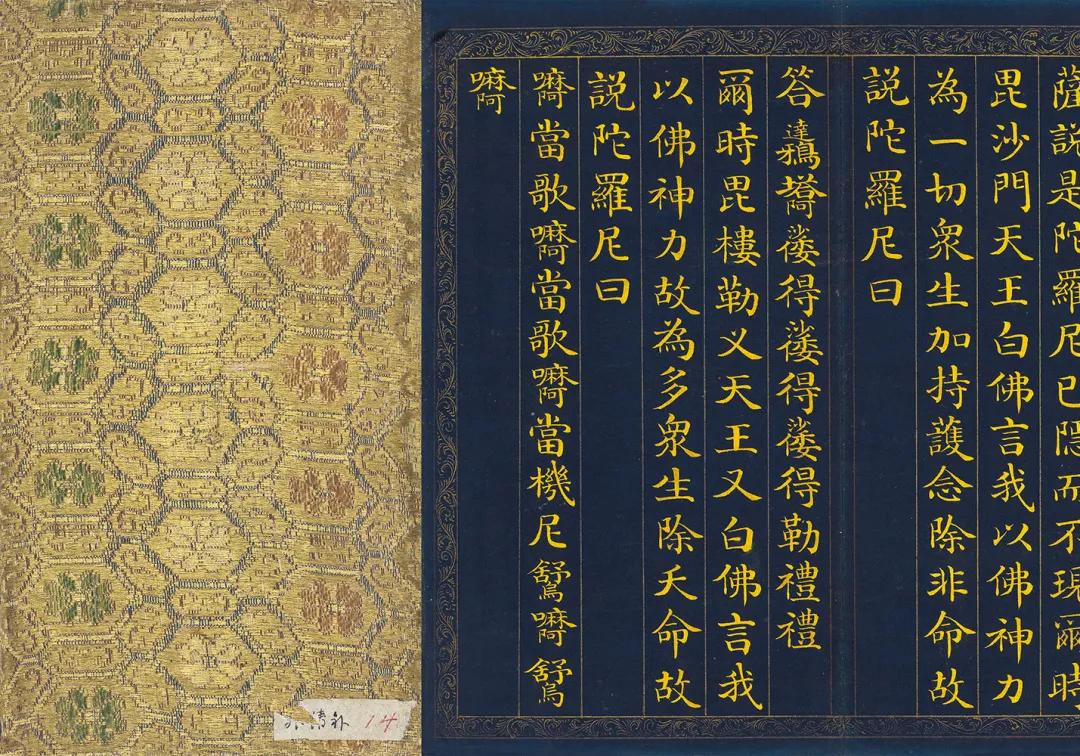 薩説是陀羅尼已隱而不現爾時
毘沙門天王白佛言我以佛神力
為一切衆生加持護念除非命故
説陀羅尼曰
答蔞得蔞得蔞得勒禮禮
爾時毘樓勒义天王又白佛言我
以佛神力故為多衆生除夭命故
説陀羅尼曰
當歌當歌當機尼
14